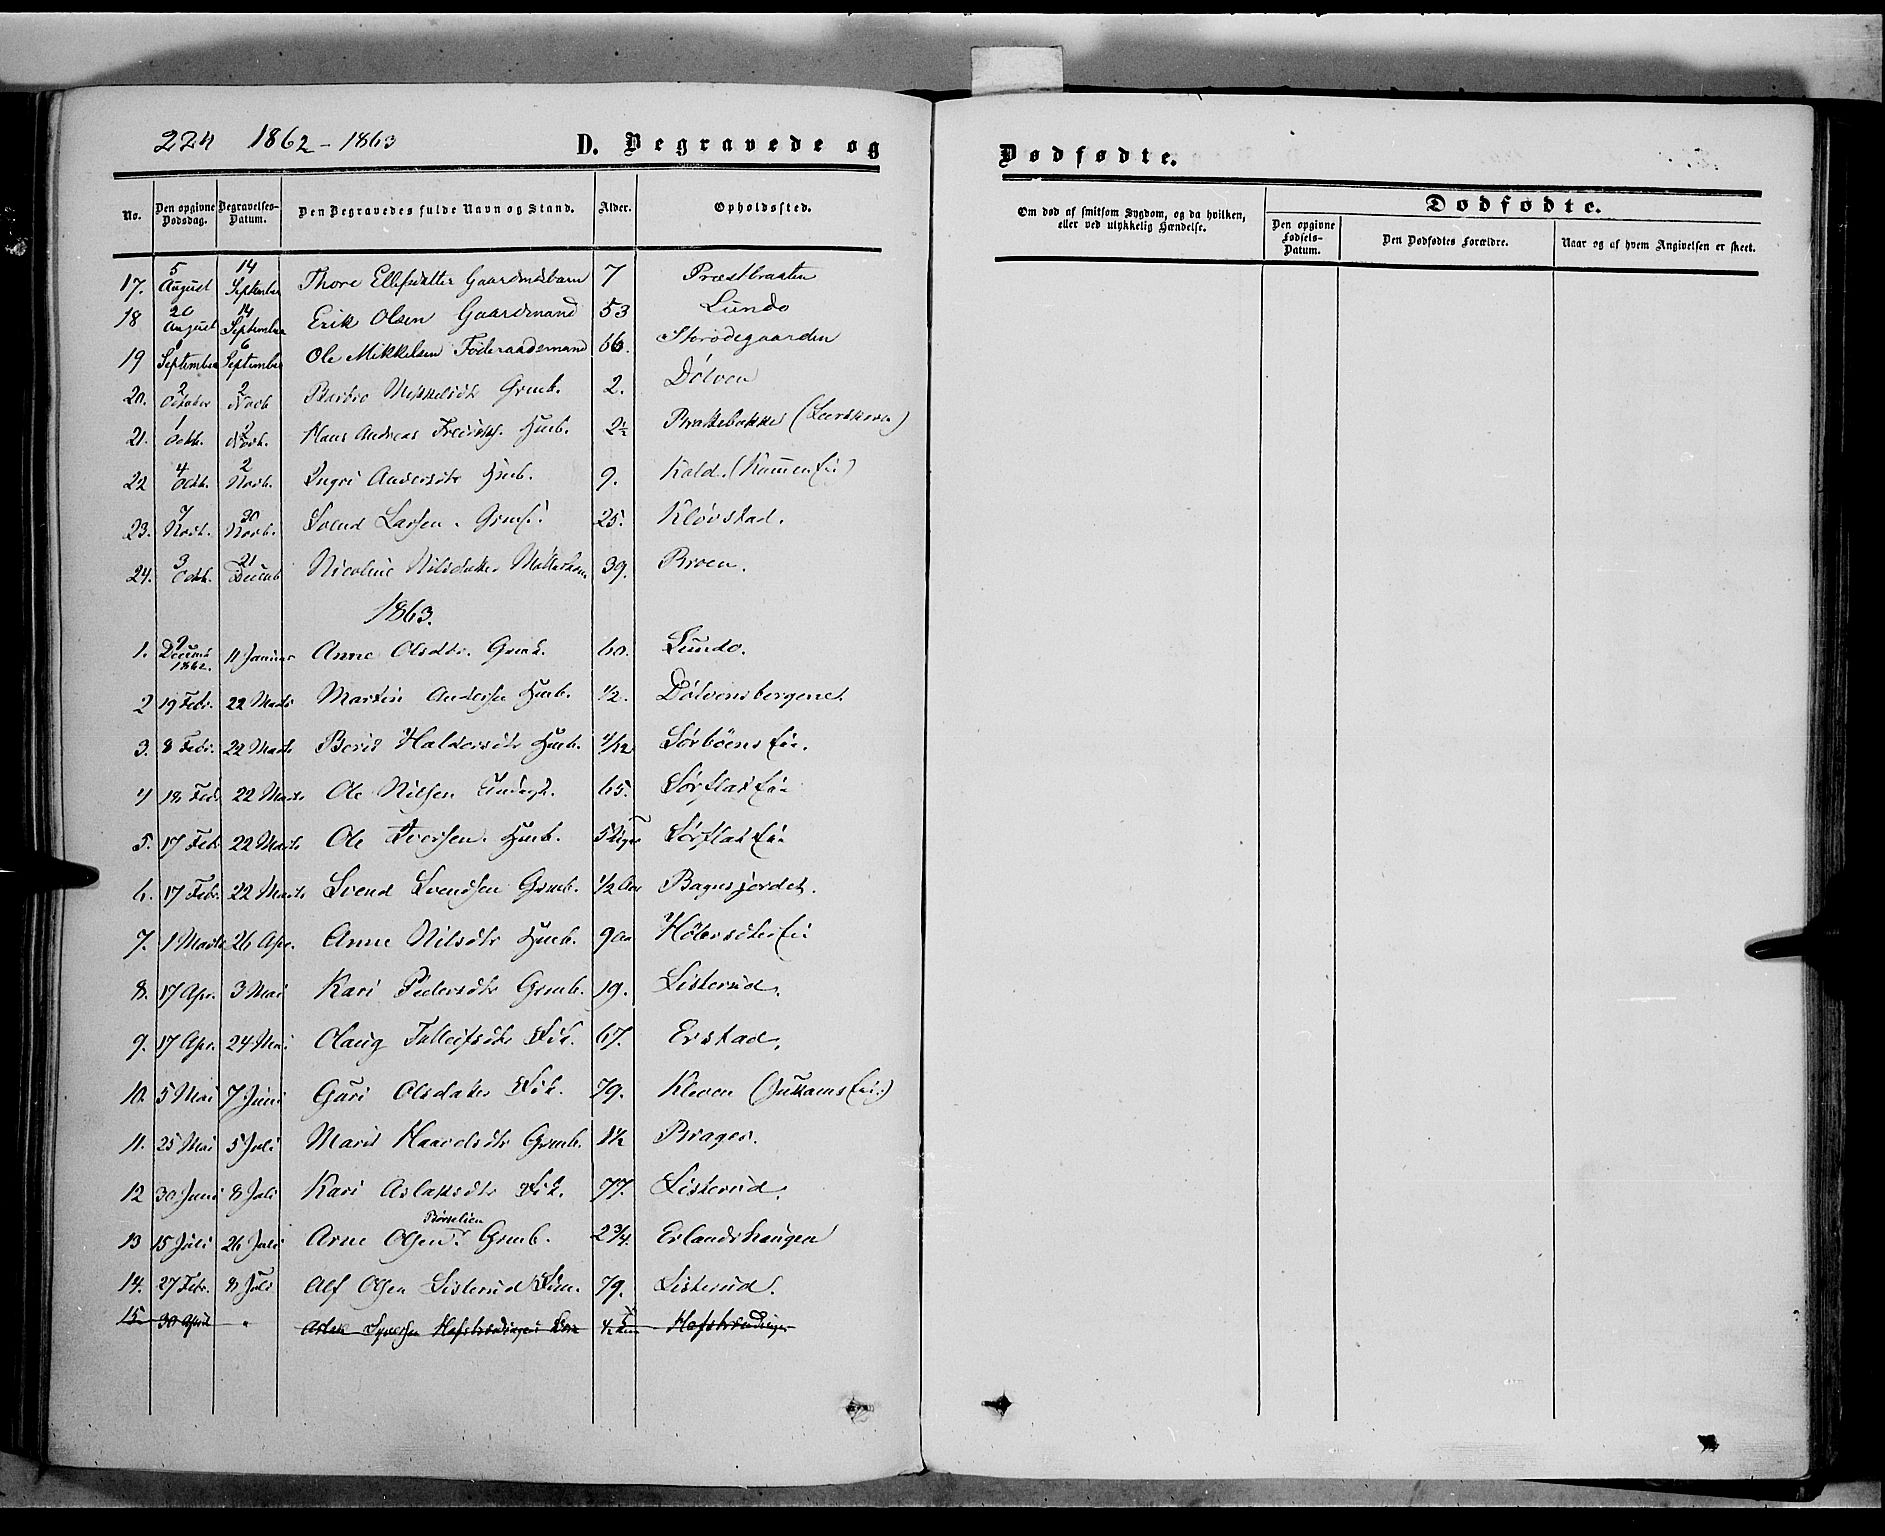 224 1862-1863 D. Begravede og
Dødfødte.
No. Den opgivne Dødsdag. Begravelses-Datum. Den Begravedes fulde Navn og Stand. Alder. Opholdssted.
Om død af smitsom Sygdom, og da hvilken, eller ved ulykkelig Hændelse.
Dødfødte.
Den opgivne Fødsels-Datum. Den Dødfødtes Forældre. Naar og af hvem Angivelsen er skeet.
17. 5 August 14 September Thore Ellefsdatter Gaardmdsbarn 7 Præstbraaten
18 20 August 14 September Erik Olsen Gaardmand 53 Lundo
19 September 6 September Ole Mikkelsen Føderaadsmand 66. Storødegaarden
20. 2 October 2 Novb Barbro Mikkelsdtr Grmb. 2. Dølven
21. 1 Octb. 2 Novb. Hans Andreas Huusb. 2½ Brakebakke
22 4 Octb. 2 Novb. Ingri Andersdtr Husb. 9. Kald.
23. 7 Novb. 30 Novb. Svend Larsen. 25. Kløvstad.
24. 3 Octb. 21 Decemb Nicoline Nilsdatter 39. Broen.
1863.
1. 9 Decemb 1862. 11 Januar Anne Olsdtr. Grmk. 60. Lundo.
2 19 Febr. 22 Marts Martin Andersen Husb. 1/2. Dølvensbergene
3. 8 Febr. 22 Marts Berit Haldorsdtr Husb. 1/12 Sørbøens Eie.
4 18 Feb 22 Marts Ole Nilsen 65. Sørflat Eie
5. 17 Feb. 22 Marts Ole Iversen. Husb. 5 Uger Sørflat Eie
6. 17 Febr. 22 Marts Svend Svendsen Grmb. 1/2 Aar Bagnsjordet.
7. 1 Marts 26 Apr. Anne Nilsdtr Husb. 9 Aar
8. 17 Apr. 3 Mai Kari Pedersdtr Grmb. 19. Listerud.
9. 17 Apr. 24 Mai Olaug Tollefsdtr Fdk. 67. Erstad.
10. 5 Mai 7 Juni Guri Olsdatter Fdk. 79. Kleven (Jukams Eie.)
11. 25 Mai 5 Juli Marit Haavelsdtr Grmb. 1½ Brager.
12 30 Juni 8 Juli Kari Aslaksdtr Fdk. 77. Listerud.
Børselien
13 15 Juli 26 Juli Arne Olsen Grmb. 2¾. Erlandshaugen
14. 27 Febr. 8 Juli Alf Olsen Listerud Fdm. 79. Listerud.
15 30 April " Aslak Syversen 1/2